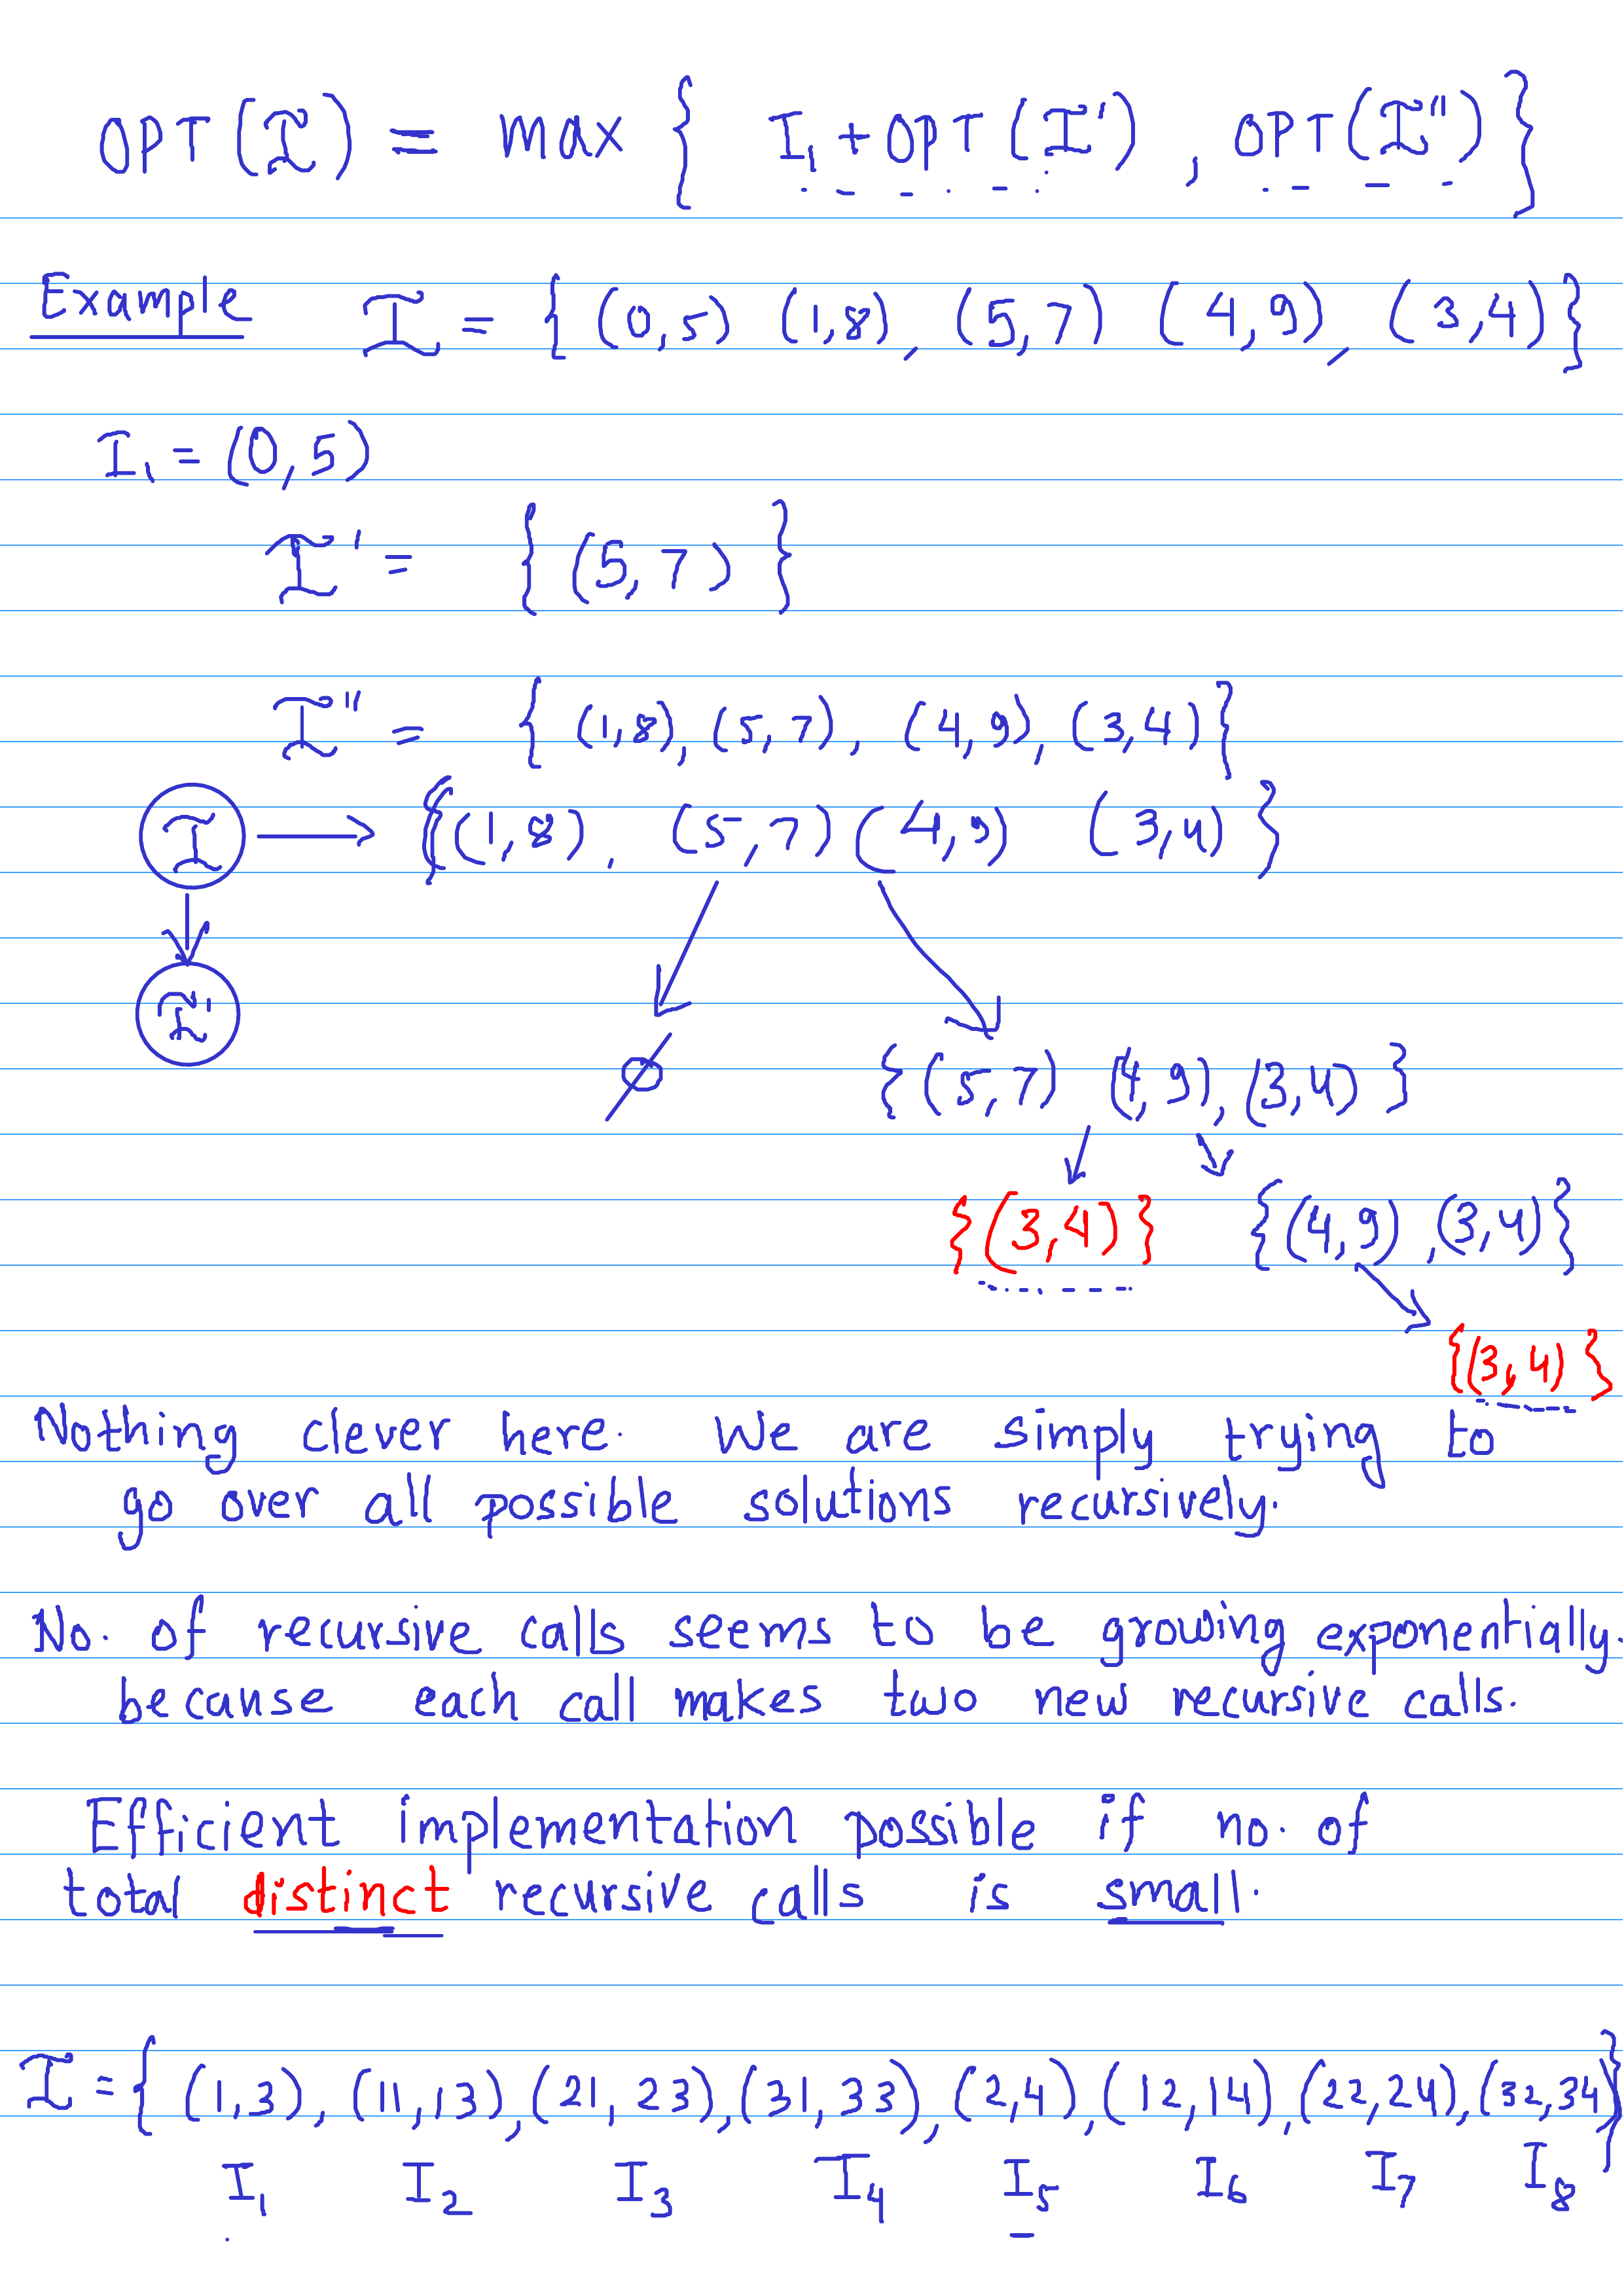 OPT(I) = max { I₁ + OPT(I') , OPT(I'') }
Example I = { (0,5) (1,8), (5,7) (4,9), (3,4) }
I₁ = (0,5)
I' = { (5,7) }
I'' = { (1,8), (5,7), (4,9), (3,4) }
I → { (1,8), (5,7) (4,9) (3,4) }
I'
∅ { (5,7) (4,9), (3,4) }
{ (3,4) } { (4,9), (3,4) }
{ (3,4) }
Nothing clever here. We are simply trying to
go over all possible solutions recursively.
No. of recursive calls seems to be growing exponentially.
because each call makes two new recursive calls.
Efficient implementation possible if no. of
total distinct recursive calls is small.
I = { (1,3), (11,13), (21,23), (31,33), (2,4), (12,14), (22,24), (32,34) }
I₁ I₂ I₃ I₄ I₅ I₆ I₇ I₈